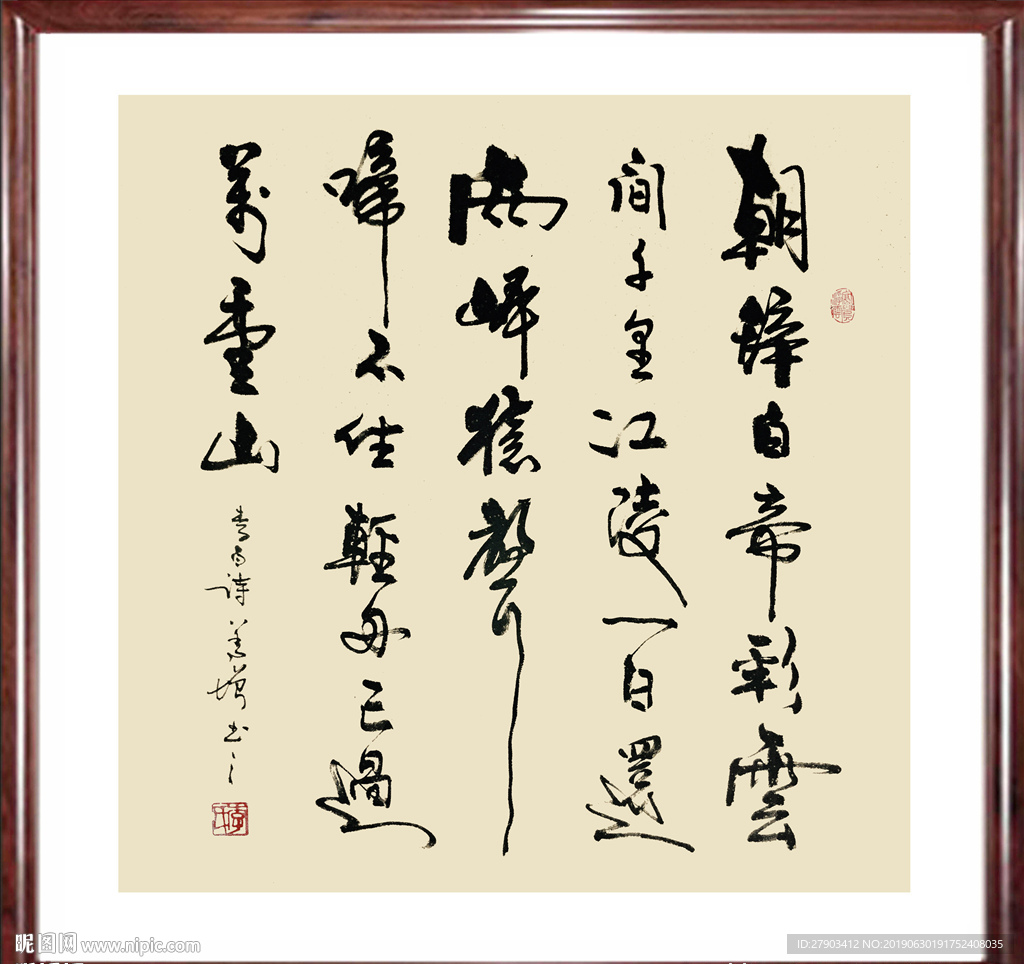 朝辭白帝彩雲
間千里江陵一日還
兩岸猿聲
啼不住輕舟已過
萬重山
李白诗
书之
昵图网 www.nipic.com
ID:27903412 NO:20190630191752408035